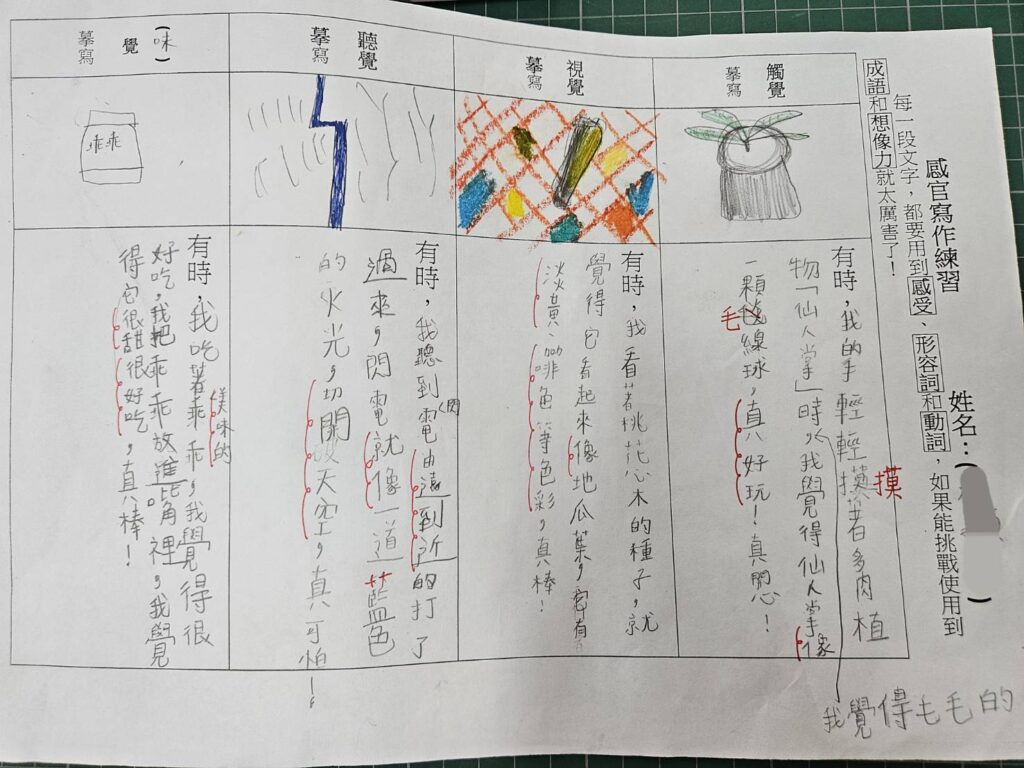 感官寫作練習
姓名：（
）
每一段文字，都要用到感受、形容詞和動詞，如果能挑戰使用到
成語和想像力就太厲害了！
觸覺
摹寫
有時，我的手輕輕摸著多肉植
摸
物「仙人掌」時，我覺得仙人掌像
一顆毯線球，真好玩！真噁！
毛
我覺得毛毛的
視覺
摹寫
有時，我看著桃花心木的種子，就
覺得它看起來像地瓜葉，它有
淡黃、咖啡色等色彩，真棒！
聽覺
摹寫
有時，我聽到閃電由遠到近的打了
過來，閃電就像一道藍色
的火光，切開天空，真可怕！
（味）
覺
摹寫
乖乖
有時，我吃著乖乖，我覺得很
美味的
好吃，我把乖乖放進嘴角裡，我覺
得它很甜很好吃，真棒！